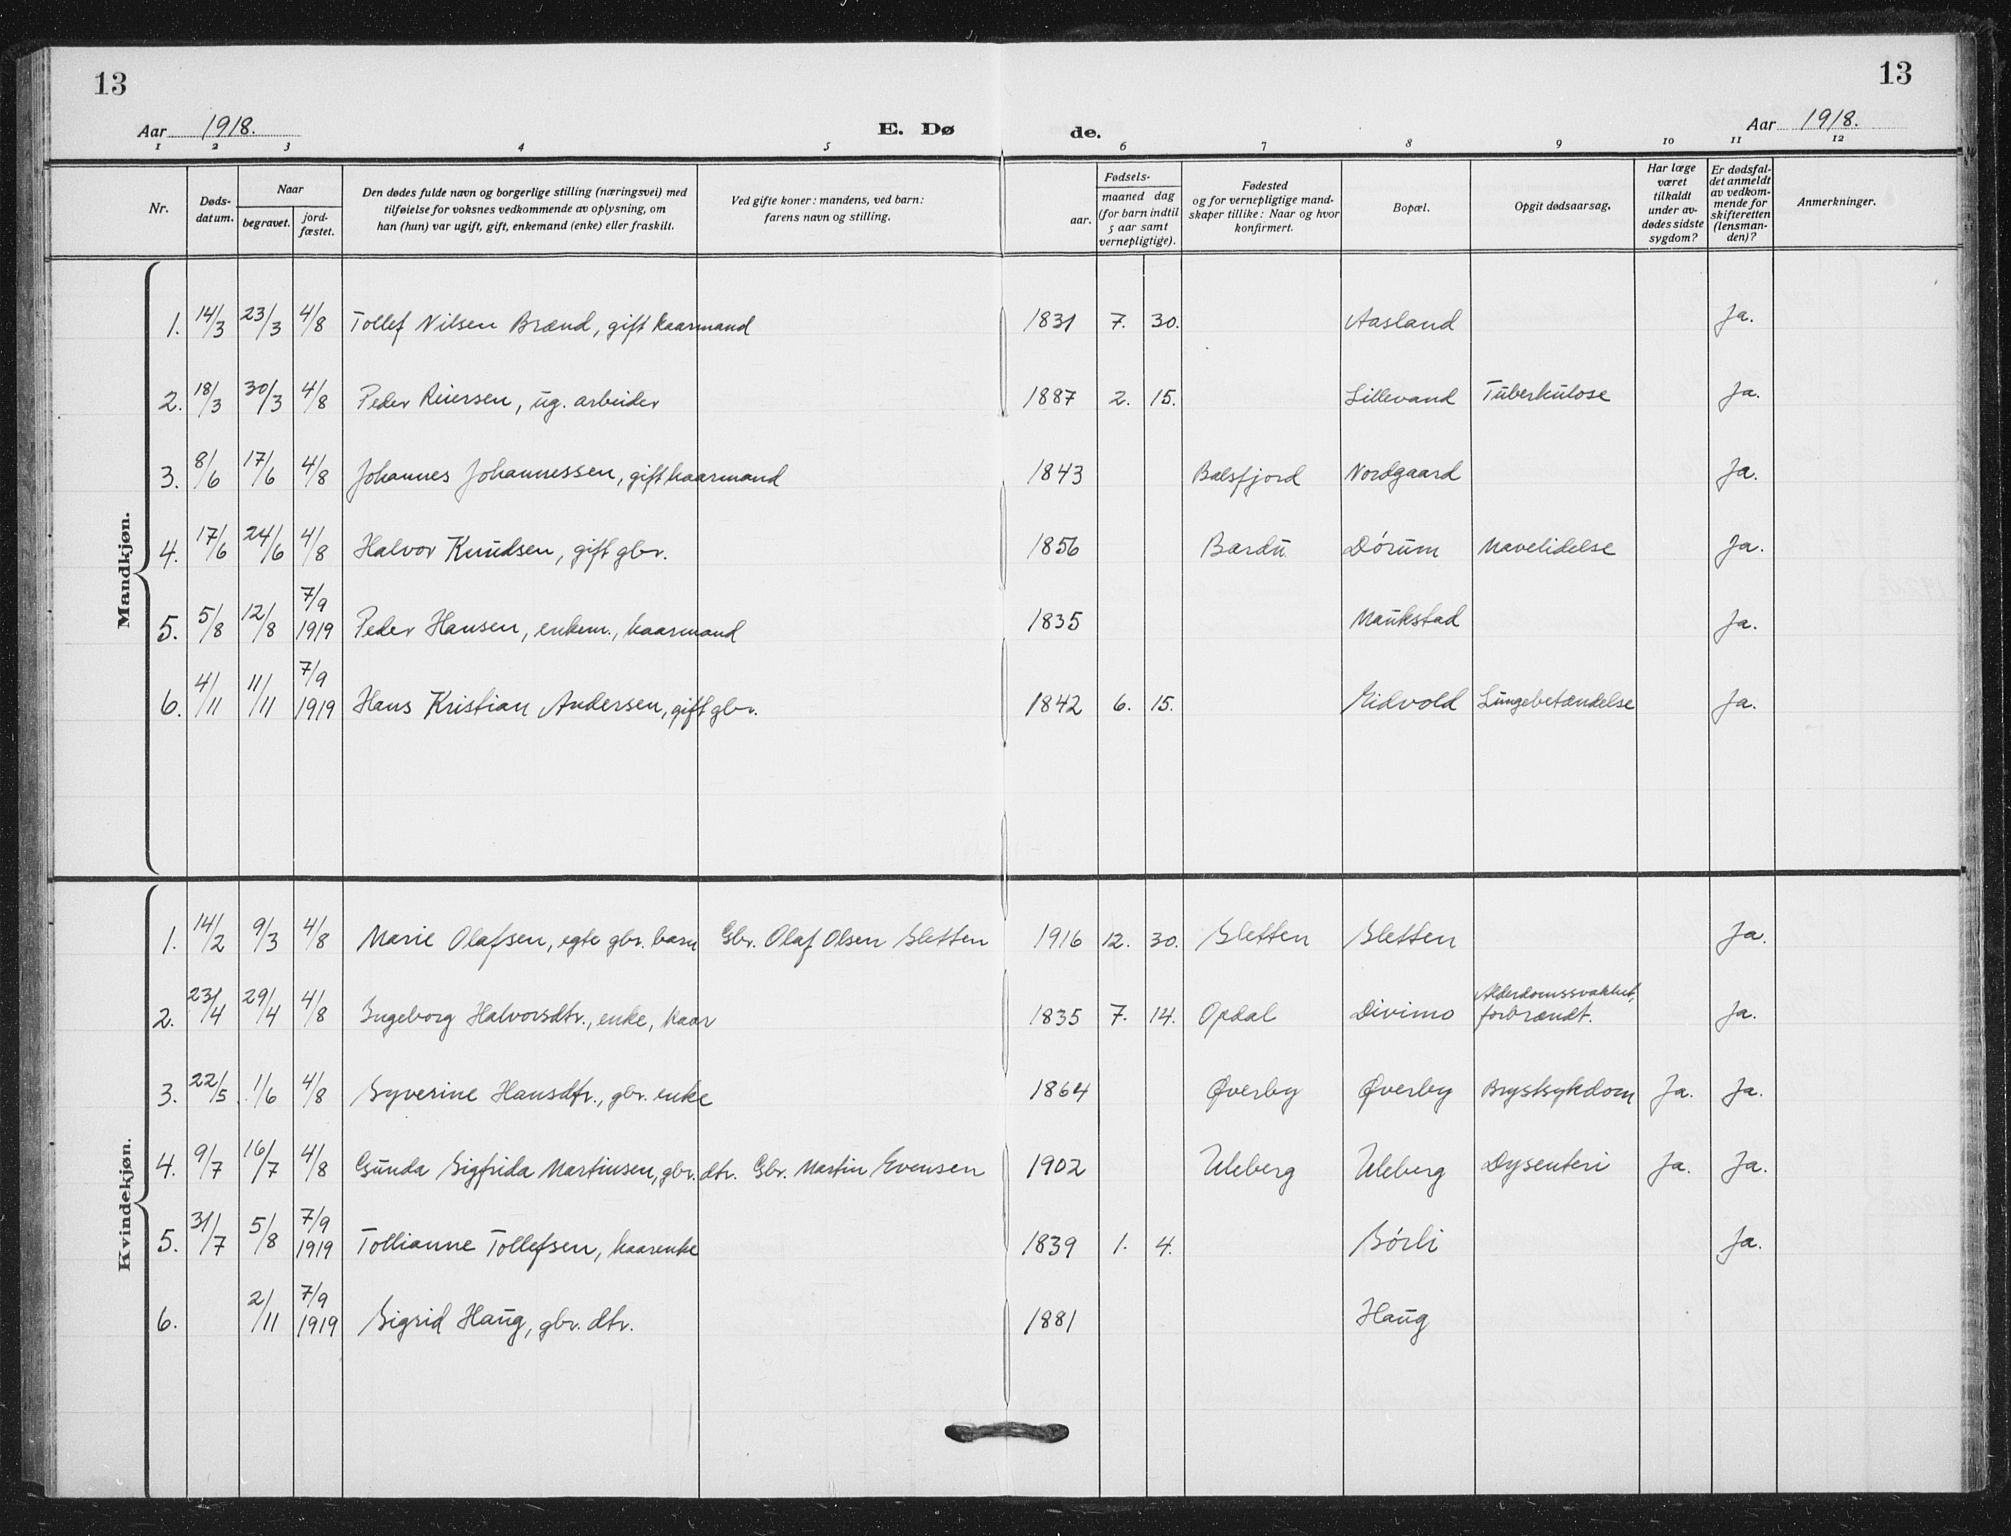 13
13
Aar 1918.
E. Dø
de.
Aar 1918.
1 2 3 4 5 6 7 8 9 10 11 12
Nr.
Døds-
datum.
Naar
begravet.
jord-
fæstet.
Den dødes fulde navn og borgerlige stilling (næringsvei) med
tilføielse for voksnes vedkommende av oplysning, om
han (hun) var ugift, gift, enkemand (enke) eller fraskilt.
Ved gifte koner: mandens, ved barn:
farens navn og stilling.
Fødsels-
aar.
maaned dag
(for barn indtil
5 aar samt
vernepligtige).
Fødested
og for vernepligtige mand-
skaper tillike: Naar og hvor
konfirmert.
Bopæl.
Opgit dødsaarsag.
Har læge
været
tilkaldt
under av-
dødes sidste
sygdom?
Er dødsfal-
det anmeldt
av vedkom-
mende for
skifteretten
(lensman-
den)?
Anmerkninger.
Mandkjøn.
1. 14/3 23/3 4/8 Tollef Nilsen Brænd, gift kaarmand 1831 7. 30. Aasland Ja.
2. 18/3 30/3 4/8 Peder Reiersen, ug. arbeider 1887 2. 15. Lillevand Tuberkulose Ja.
3. 8/6 17/6 4/8 Johannes Johannessen, gift kaarmand 1843 Balsfjord Nordgaard Ja.
4. 17/6 24/6 4/8 Halvor Knudsen, gift gbr. 1856 Bardu Dørum Mavelidelse Ja.
5. 5/8 12/8 7/9 1919 Peder Hansen, enkem., kaarmand 1835 Maukstad Ja.
6. 4/11 11/11 7/9 1919 Hans Kristian Andersen, gift gbr. 1842 6. 15. Eidvold Lungebetændelse Ja.
Kvindekjøn.
1. 14/2 9/3 4/8 Marie Olafsen, egte gbr. barn Gbr. Olaf Olsen Sletten 1916 12. 30. Sletten Sletten Ja.
2. 23/4 29/4 4/8 Ingeborg Halvorsdtr., enke, kaar 1835 7. 14. Opdal Divimo Alderdomssvakhet, forbrændt. Ja.
3. 22/5 1/6 4/8 Syverine Hansdtr., gbr. enke 1864 Øverby Øverby Brystsykdom Ja. Ja.
4. 9/7 16/7 4/8 Gunda Sigfrida Martinsen, gbr. dtr. Gbr. Martin Evensen 1902 Uleberg Uleberg Dysenteri Ja. Ja.
5. 31/7 5/8 7/9 1919 Tollianne Tollefsen, kaarenke 1839 1. 4. Børli Ja.
6. 2/11 7/9 1919 Sigrid Haug, gbr. dtr. 1881 Haug